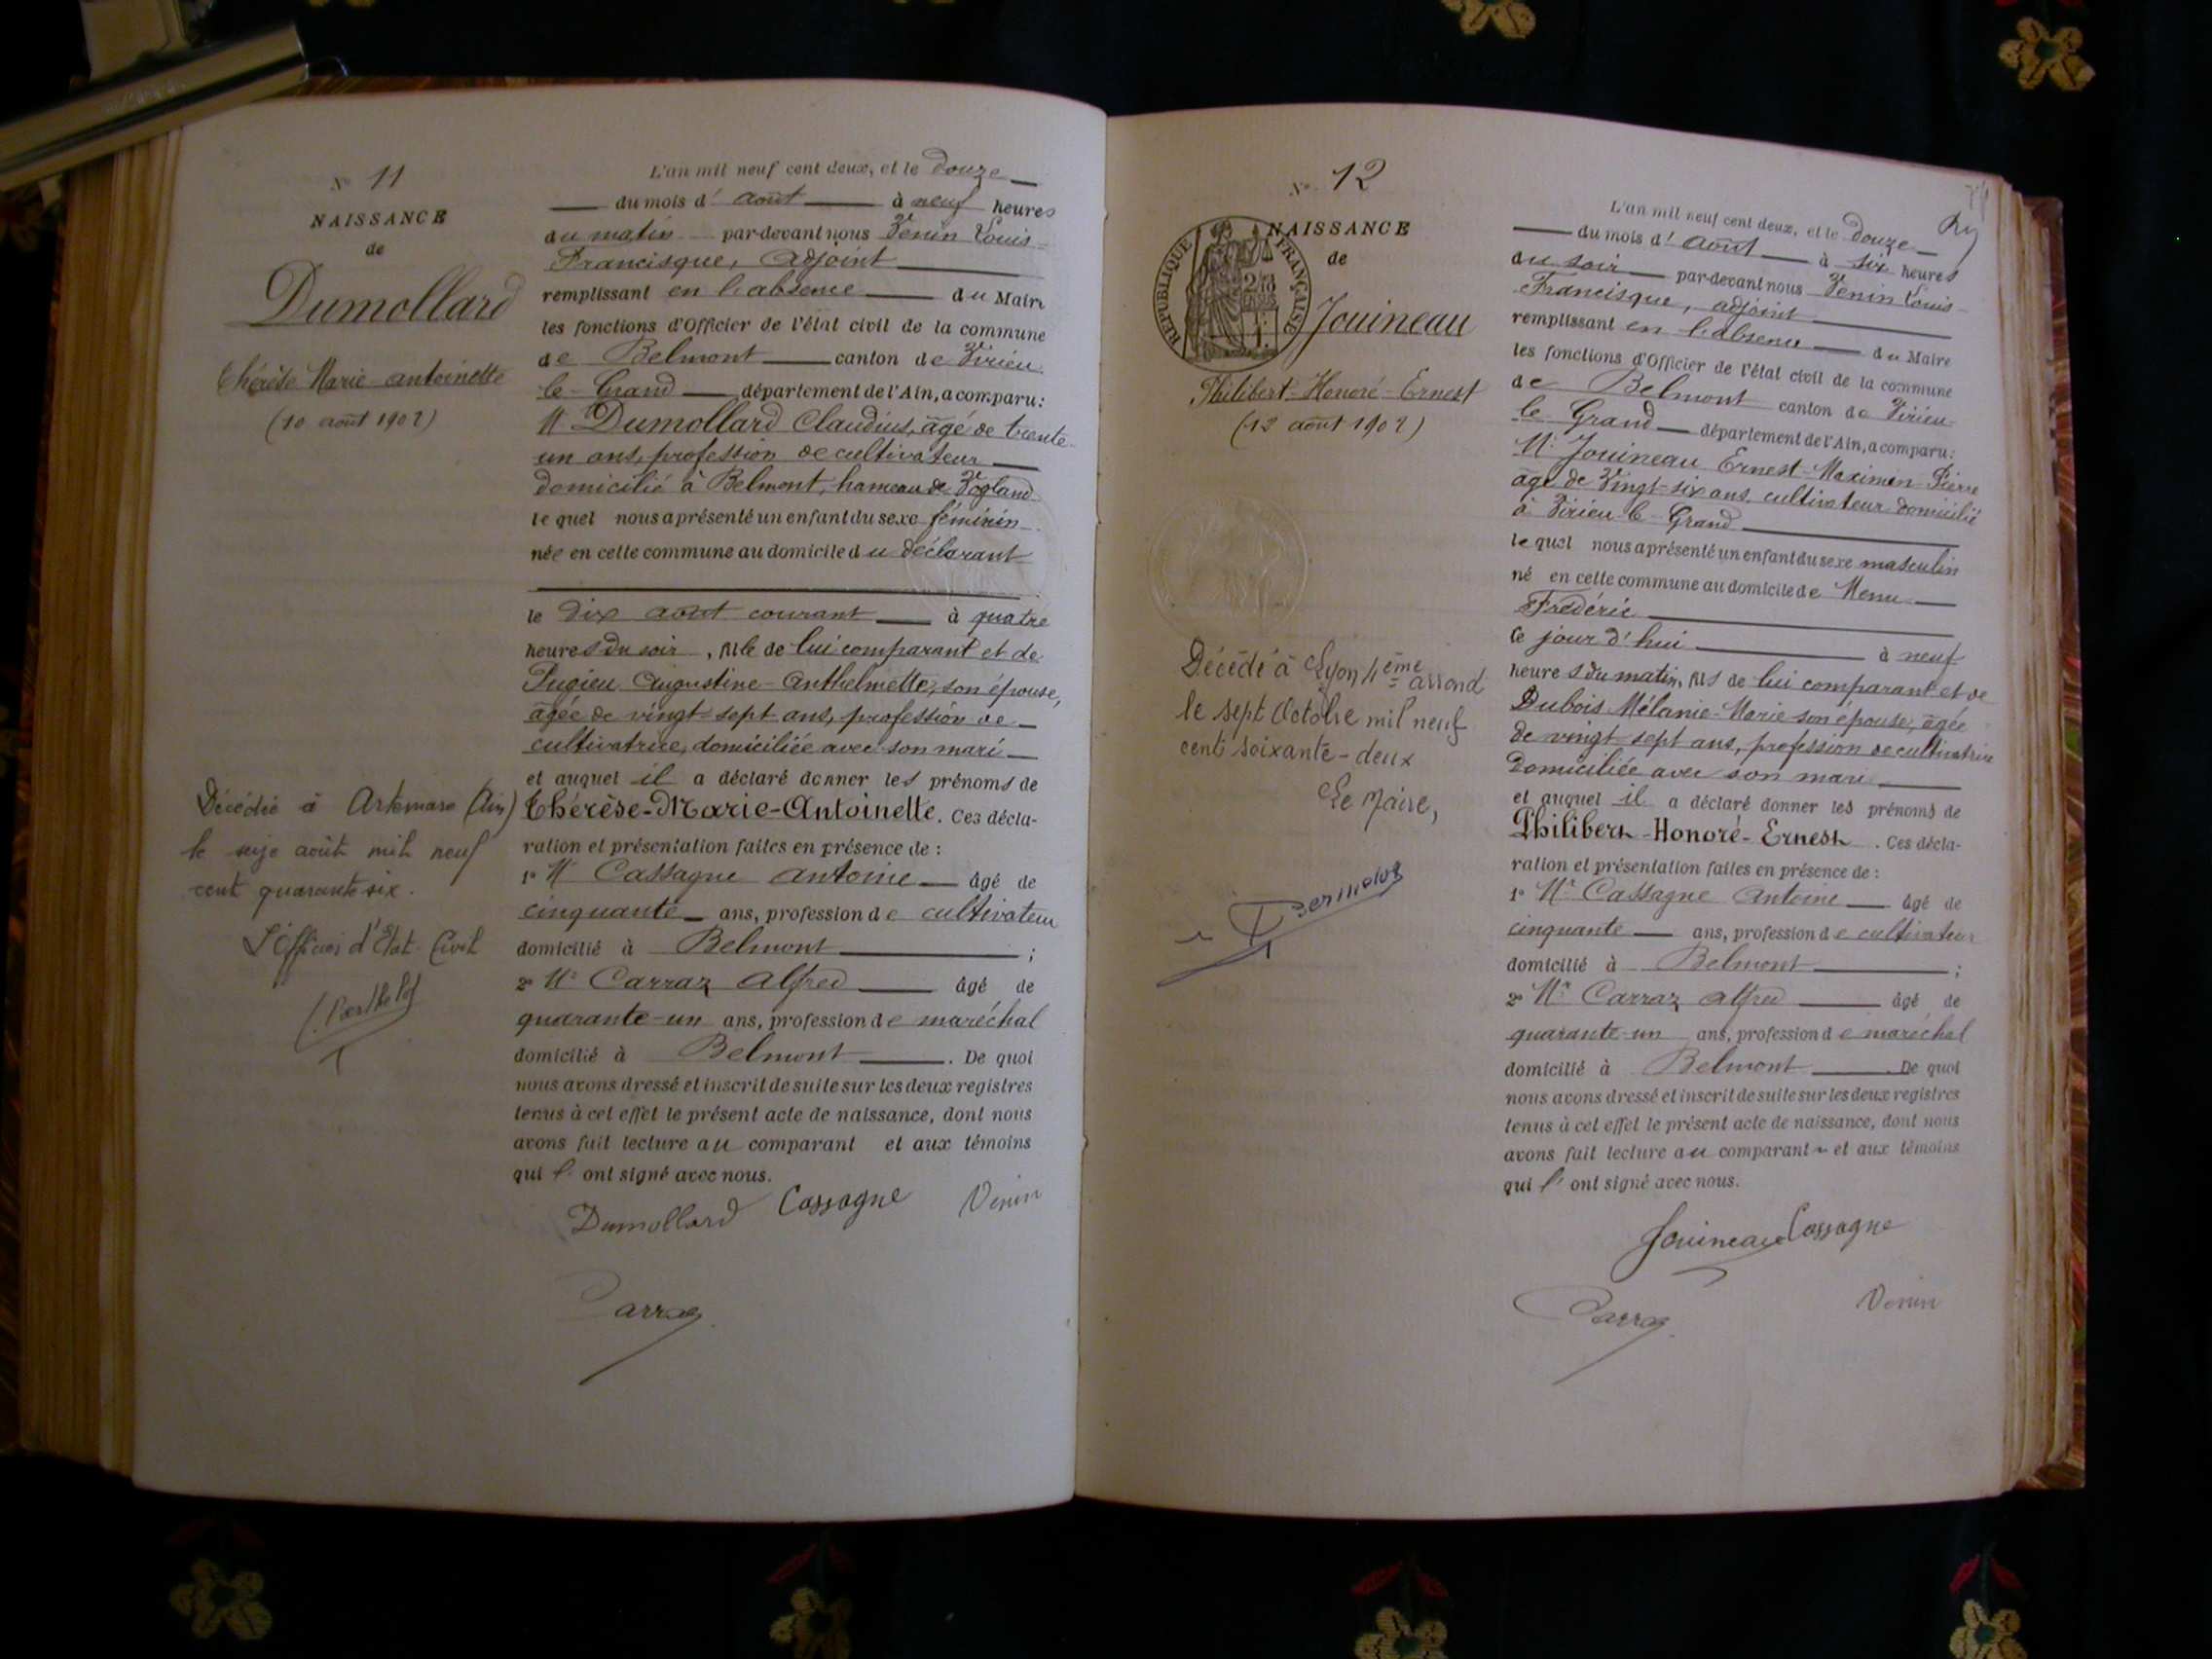 N° 11
NAISSANCE
de
Dumollard
Thérèse Marie-antoinette
(10 août 1902)
Décédée à Artemare (Ain)
le seize août mil neuf
cent quarante six.
L'Officier d'Etat-Civil
L'an mil neuf cent deux, et le douze
du mois d'août à neuf heures
du matin par-devant nous Venin Louis-
Francisque, adjoint
remplissant en l'absence du Maire
les fonctions d'Officier de l'état civil de la commune
de Belmont canton de Virieu
le-Grand département de l'Ain, a comparu:
Mr Dumollard Claudius, âgé de trente-
un ans, profession de cultivateur
domicilié à Belmont, hameau de Vogland
lequel nous a présenté un enfant du sexe féminin
née en cette commune au domicile du déclarant
le dix août courant à quatre
heures du soir, fille de lui comparant et de
Pugieu Augustine-Anthelmette, son épouse,
âgée de vingt-sept ans, profession de
cultivatrice, domiciliée avec son mari
et auquel il a déclaré donner les prénoms de
Thérèse-Marie-Antoinette. Ces décla-
ration et présentation faites en présence de :
1° Mr Cassagne Antoine âgé de
cinquante ans, profession de cultivateur
domicilié à Belmont ;
2° Mr Carraz Alfred âgé de
quarante-un ans, profession de maréchal
domicilié à Belmont. De quoi
nous avons dressé et inscrit de suite sur les deux registres
tenus à cet effet le présent acte de naissance, dont nous
avons fait lecture au comparant et aux témoins
qui l'ont signé avec nous.
Dumollard Cassagne Venin
Carraz
N° 12
NAISSANCE
de
RÉPUBLIQUE FRANÇAISE
Jouineau
Philibert-Honoré-Ernest
(12 août 1902)
Décédé à Lyon 4ème arrond
le sept Octobre mil neuf
cent soixante-deux
Le Maire,
L'an mil neuf cent deux, et le douze
du mois d'août à six heures
du soir par-devant nous Venin Louis-
Francisque, adjoint
remplissant en l'absence du Maire
les fonctions d'Officier de l'état civil de la commune
de Belmont canton de Virieu-
le Grand département de l'Ain, a comparu:
Mr Jouineau Ernest-Maximin Pierre
âgé de vingt-six ans, cultivateur domicilié
à Virieu-le-Grand
lequel nous a présenté un enfant du sexe masculin
né en cette commune au domicile de Menu
Frédéric
ce jour d'hui à neuf
heures du matin, fils de lui comparant et de
Dubois Mélanie-Marie son épouse, âgée
de vingt-sept ans, profession de cultivatrice
domiciliée avec son mari
et auquel il a déclaré donner les prénoms de
Philibert-Honoré-Ernest. Ces décla-
ration et présentation faites en présence de :
1° Mr Cassagne Antoine âgé de
cinquante ans, profession de cultivateur
domicilié à Belmont ;
2° Mr Carraz Alfred âgé de
quarante-un ans, profession de maréchal
domicilié à Belmont De quoi
nous avons dressé et inscrit de suite sur les deux registres
tenus à cet effet le présent acte de naissance, dont nous
avons fait lecture au comparant et aux témoins
qui l'ont signé avec nous.
Jouineau Cassagne
Carraz Venin